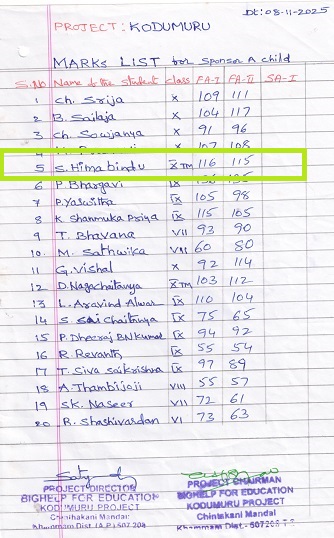 Dt:08-11-2025
PROJECT: KODUMURU
MARKS LIST for Sponsor A child
S.No Name of the Student class FA-I FA-II SA-I
1 Ch. Srija X 109 111
2 B. Sailaja X 104 117
3 Ch. Sowjanya X 91 96
4 107 108
5 S. Hima bindu X TM 116 115
6 P. Bhargavi
7 P. Yaswitha IX 105 98
8 K. Shanmuka Priya IX 115 105
9 T. Bhavana VII 93 90
10 M. Sathwika VII 60 80
11 G. Vishal X 92 114
12 D. Nagachaitanya X TM 103 112
13 L. Aravind Alwar IX 110 104
14 S. Sai Chaitanya IX 75 65
15 P. Dheeraj BN Kumar IX 94 92
16 R. Revanth IX 55 54
17 T. Siva Saikrishna IX 97 89
18 A. Thambi joji VIII 55 57
19 SK. Naseer VII 72 61
20 R. Shashivardan VI 73 63
PROJECT DIRECTOR
BIGHELP FOR EDUCATION
KODUMURU PROJECT
Chinthakani Mandal
Khammam Dist. (A.P) 507 208
PROJECT CHAIRMAN
BIGHELP FOR EDUCATION
KODUMURU PROJECT
Chintakani Mandal
Khammam Dist.- 507208